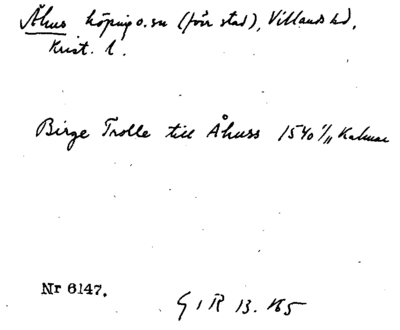 Åhus köping o. sn (förr stad), Villands hd,
Krist. l.
Birge Trolle till Åhuss 1540 1/11 Kalmar
Nr 6147.
G I R 13. 165